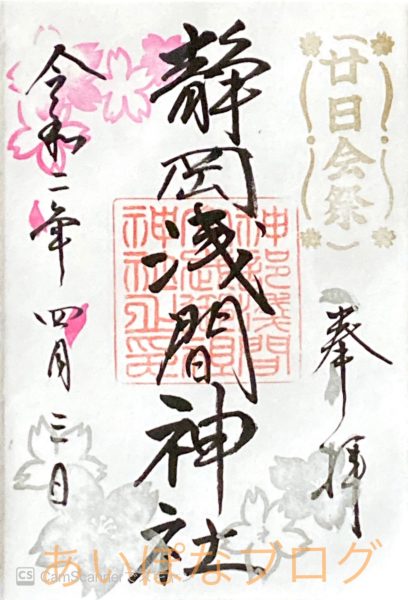 廿日会祭
奉拝
静岡浅間神社
令和二年四月三日
神部浅間
神社之印
あいぽなブログ
CS CamScanner